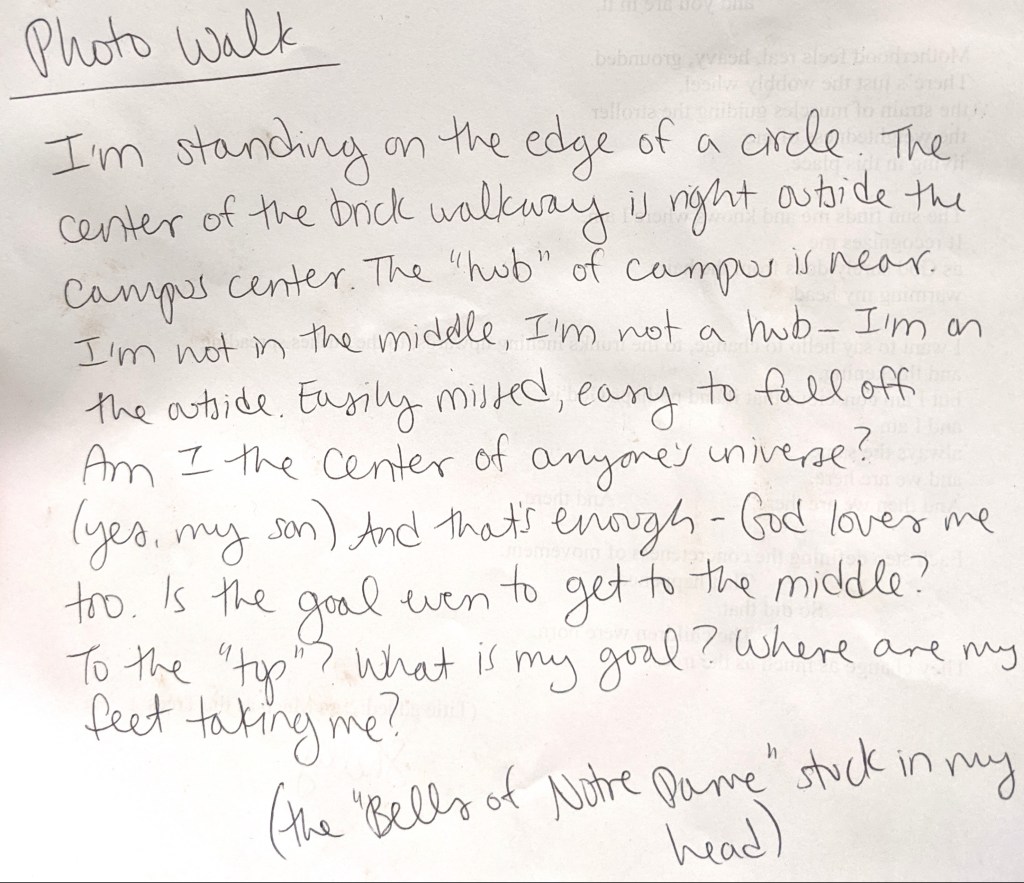 Photo Walk
I'm standing on the edge of a circle The
center of the brick walkway is right outside the
campus center. The "hub" of campus is near.
I'm not in the middle I'm not a hub – I'm on
the outside. Easily missed, easy to fall off
Am I the center of anyone's universe?
(yes, my son) And that's enough – God loves me
too. Is the goal even to get to the middle?
To the "top"? What is my goal? Where are my
feet taking me?
(the "Bells of Notre Dame" stuck in my
head)